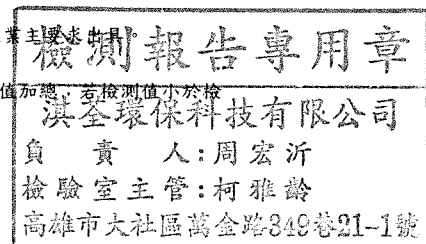 業主要求出具。
檢測報告專用章
值加總，若檢測值小於檢
淇荃環保科技有限公司
負責人:周宏沂
檢驗室主管:柯雅齡
高雄市大社區萬金路349巷21-1號